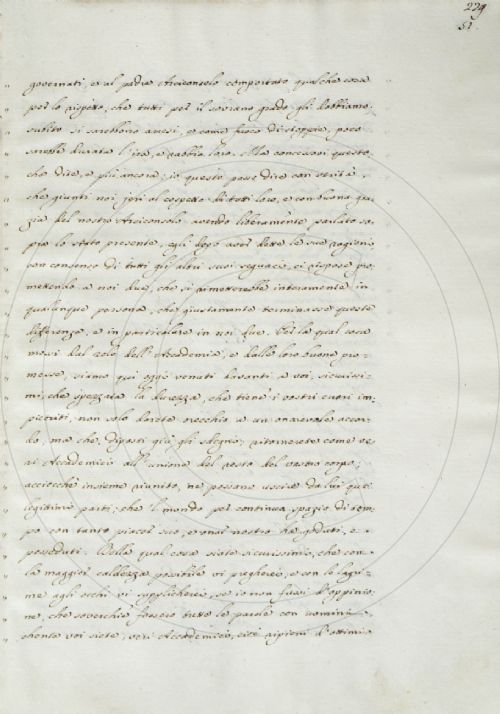 229
51.
governati, e al padre Arciconsolo comportato qualche cosa
per lo rispetto, che tutti per il sovrano grado gli dobbiamo
subito si sarebbono accesi, e come fuoco di stoppie, poco
sarebbe durata l'ira, e rabbia loro. Ma concessovi questo,
che dite, e più ancora; io questo posso dire con verità,
che giunti noi jeri al cospetto di tutti loro, e con buona gra-
zia del nostro Arciconsolo avendo liberamente parlato so-
pra lo stato presente, egli dopo aver dette le sue ragioni
con consenso di tutti gli altri suoi seguaci, ci rispose pro-
mettendo a noi due, che si rimetterebbe interamente in
qualunque persona, che giustamente terminasse queste
differenze, e in particolare in noi due. Per la qual cosa
mossi dal zelo dell'Accademia, e dalle loro buone pro-
messe, siamo qui oggi venuti davanti a voi, sicurissi-
mi, che spezzata la durezza, che tiene i vostri cuori im-
pietriti, non solo darete orecchio a un onorevole accor-
do, ma che, diposti giù gli sdegni, ritornerete come ve-
ri Accademici all'unione del resto del vostro corpo;
acciocchè insieme riunito, ne possano uscire da lui quei
legittimi parti, che 'l mondo per continuo spazio di tem-
po con tanto piacer suo, e onor nostro ha goduti, e
posseduti. Della qual cosa siate sicurissimi, che con
la maggior caldezza possibile vi pregherei, e con le lagri-
me agli occhi vi supplicherei, se io non fussi d'oppinio-
ne, che soverchie fossero tutte le parole con uomini
chente voi siete, veri Accademici, cioè ripieni d'ottimi